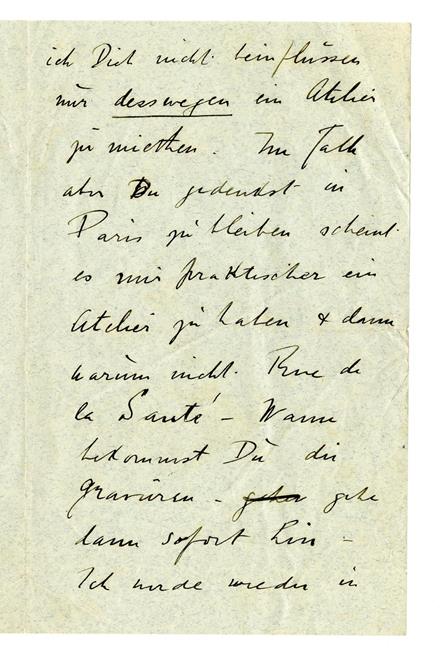 ich Dich nicht beinflüssen
nur desswegen ein Atelier
zu miethen. Im Falle
aber Du gedenkst in
Paris zu bleiben scheint
es mir praktischer ein
Atelier zu haben & dann
warum nicht. Rue de
la Santé – Wann
bekommst Du die
Gravüren – geher gehe
dann sofort hin –
Ich werde wieder in